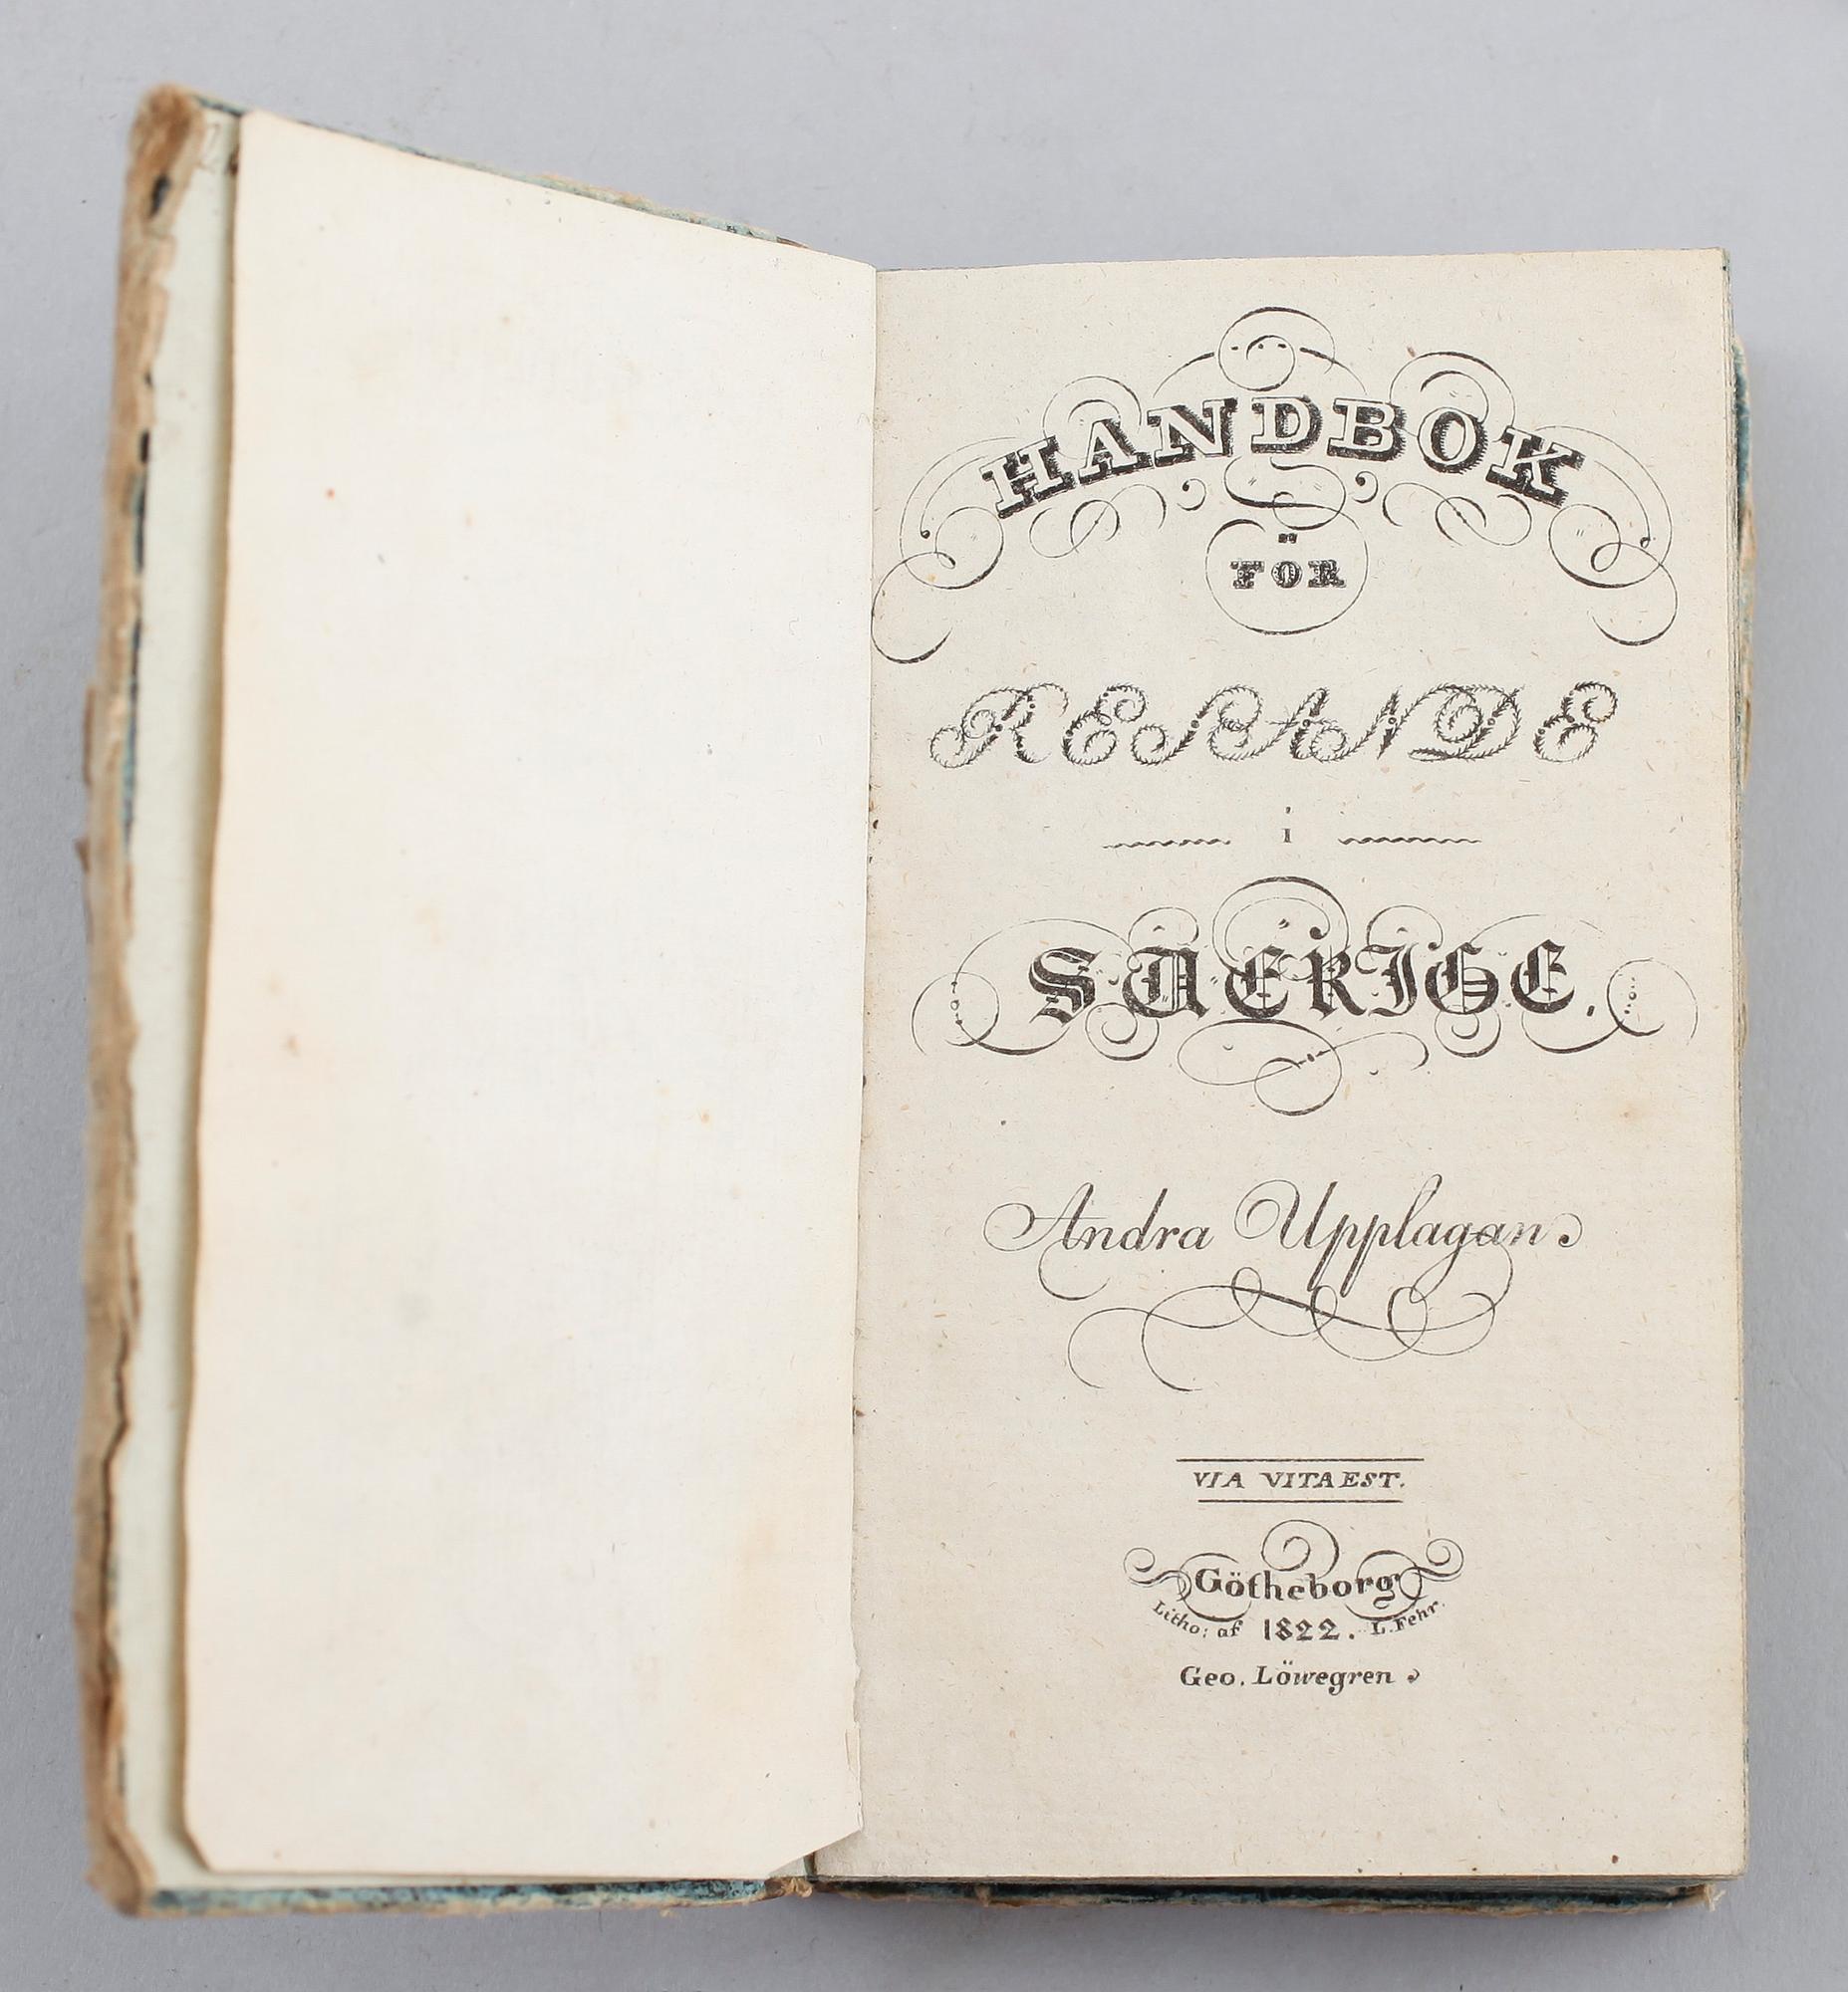 HANDBOK
FÖR
RESANDE
i
SVERIGE.
Andra Upplagan.
VIA VITA EST.
Götheborg
Litho; af 1822. L. Fehr.
Geo. Löwegren.